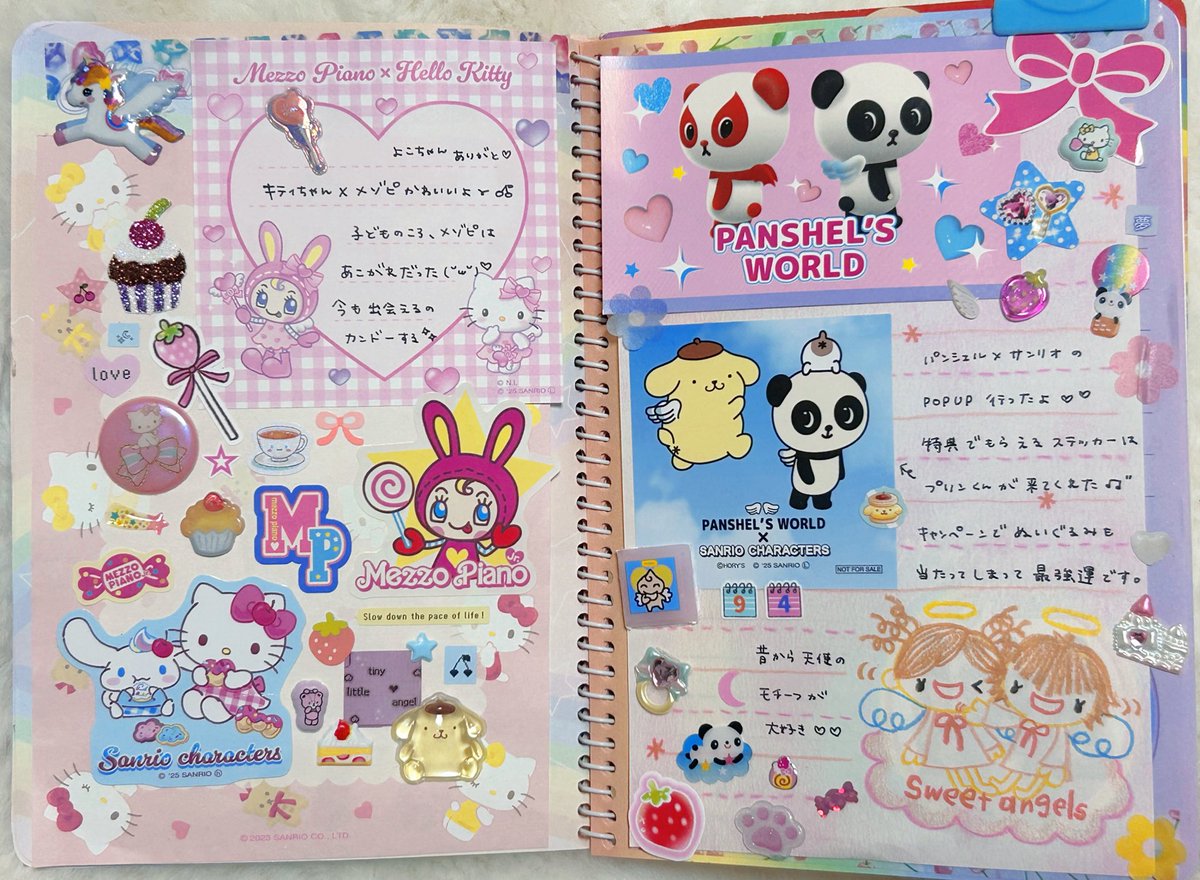 Mezzo Piano × Hello Kitty
よこちゃん ありがと♡
キティちゃん × メゾピ かわいいよ〜
子どものころ、メゾピは
あこがれだった (˘ω˘)♡
今も出会えるの
カンドーする
© N.L
© '25 SANRIO Ⓛ
love
mezzo piano
MP
Mezzo Piano
MEZZO PIANO
Slow down the pace of life!
tiny
little
angel
Sanrio characters
© '25 SANRIO
© 2025 SANRIO CO., LTD.
PANSHEL'S
WORLD
夢
PANSHEL'S WORLD
×
SANRIO CHARACTERS
©HORY'S © '25 SANRIO Ⓛ
NOT FOR SALE
パンシェル × サンリオの
POPUP 行ったよ ♡♡
特典でもらえるステッカーは
プリンくんが来てくれた♫"
キャンペーンでぬいぐるみも
当たってしまって最強運です。
9
4
昔から天使の
モチーフが
大好き♡♡
Sweet angels